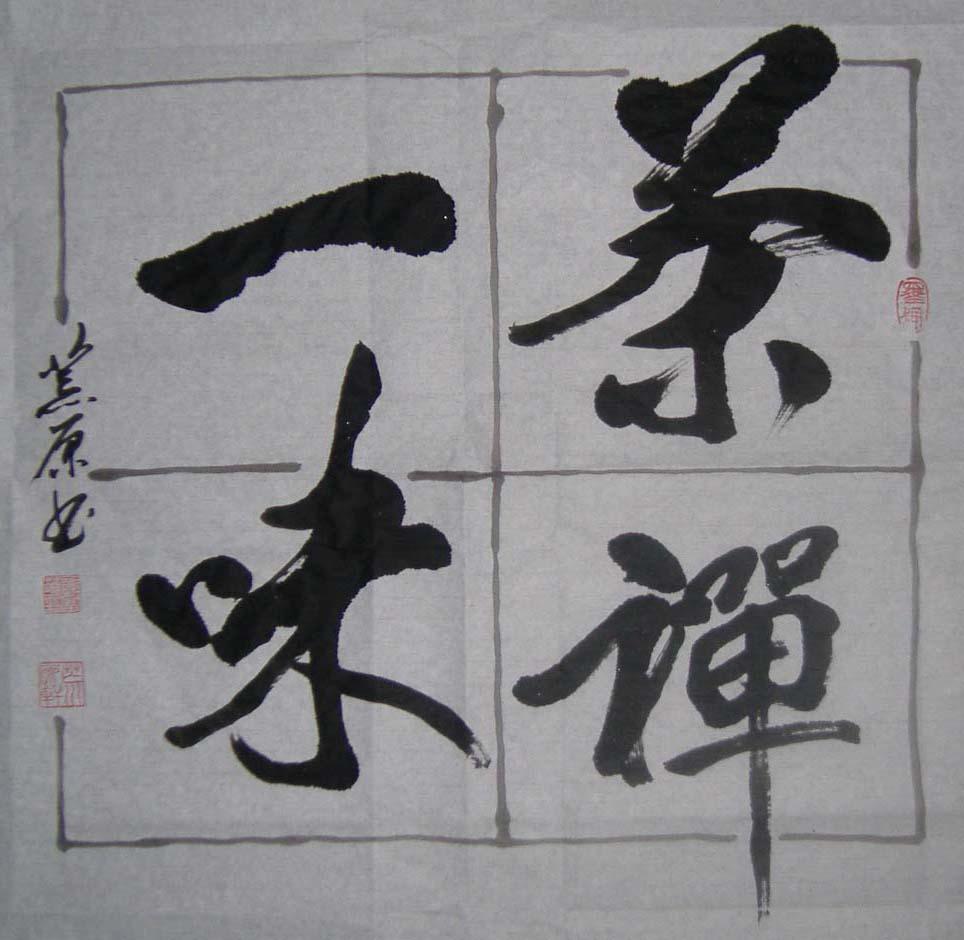 茶禪
一味
原书